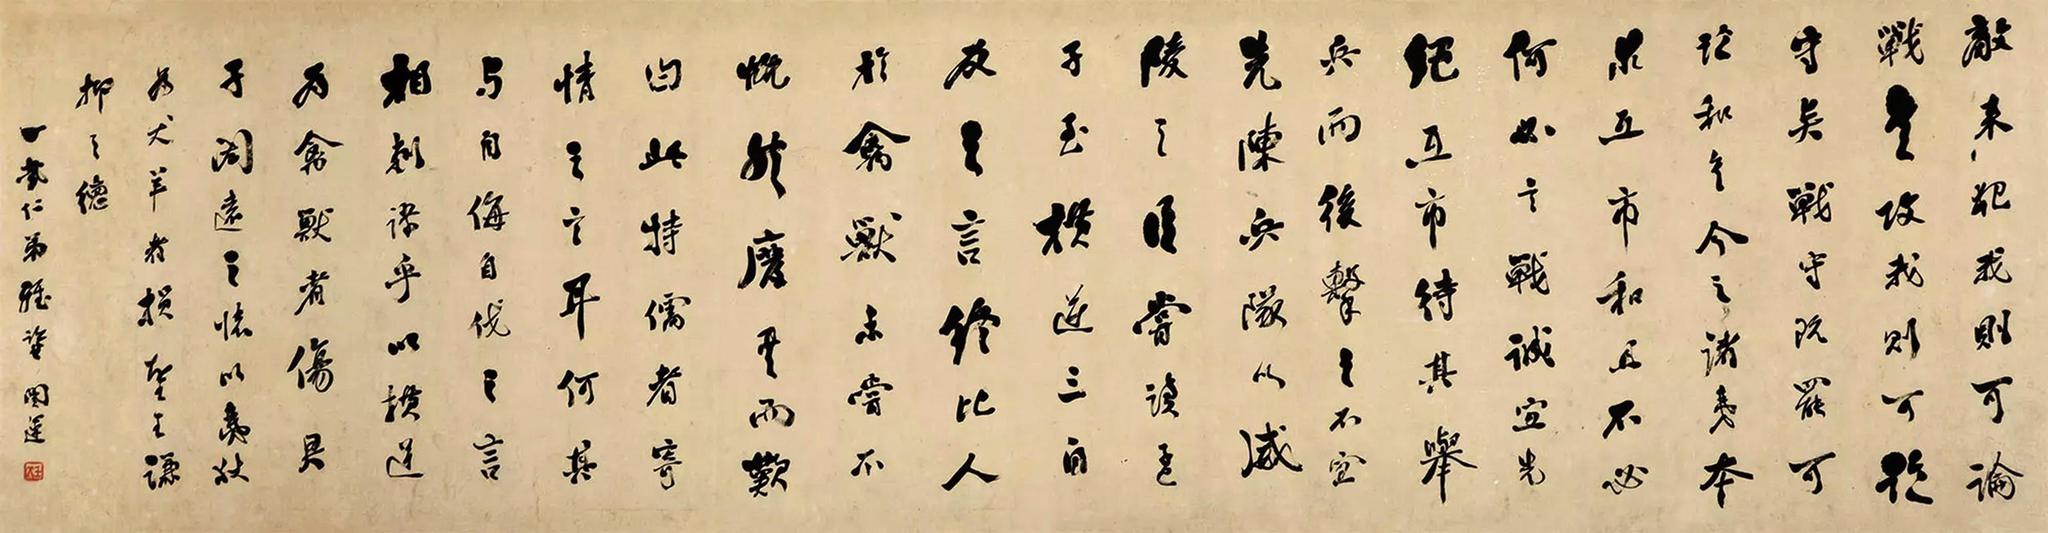 敵未犯我則可論
戰攻我則可論
守矣戰守既罷可
論和矣今之諸夷本
求互市和且不必
何必言戰誠宜先
絕互市待其舉
兵而後擊之不宜
先陳兵隊以威
陵之臣嘗讀孟
子至橫逆三自
反之言終比人
於禽獸未嘗不
慨然廢書而歎
曰此特儒者寄
情之言耳何其
與自侮自伐之言
相刺謬乎以橫逆
為禽獸者傷君
子闊遠之懷以夷狄
為犬羊者損聖王謙
抑之德
仁弟雅鑒 闓運